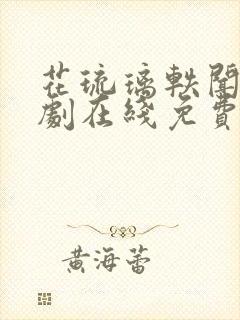 花琉璃軼聞
劇在綫免費
黃海蕾